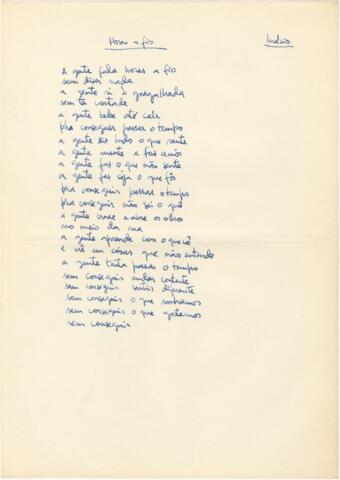 Horas a fio
A gente fala horas a fio
sem dizer nada
a gente ri à gargalhada
sem ter vontade
a gente bebe até cair
pra conseguir passar o tempo
a gente diz tudo o que sente
a gente mente e faz amor
a gente faz o que não sente
a gente faz seja o que fôr
pra conseguir passar o tempo
pra conseguir não sei o quê
a gente corre e abre os olhos
no meio da rua
a gente aprende com o que lê
e vê em coisas que não entende
a gente tenta passar o tempo
sem conseguir andar contente
sem conseguir sentir diferente
sem conseguir o que sonhamos
sem conseguir o que gostamos
sem conseguir